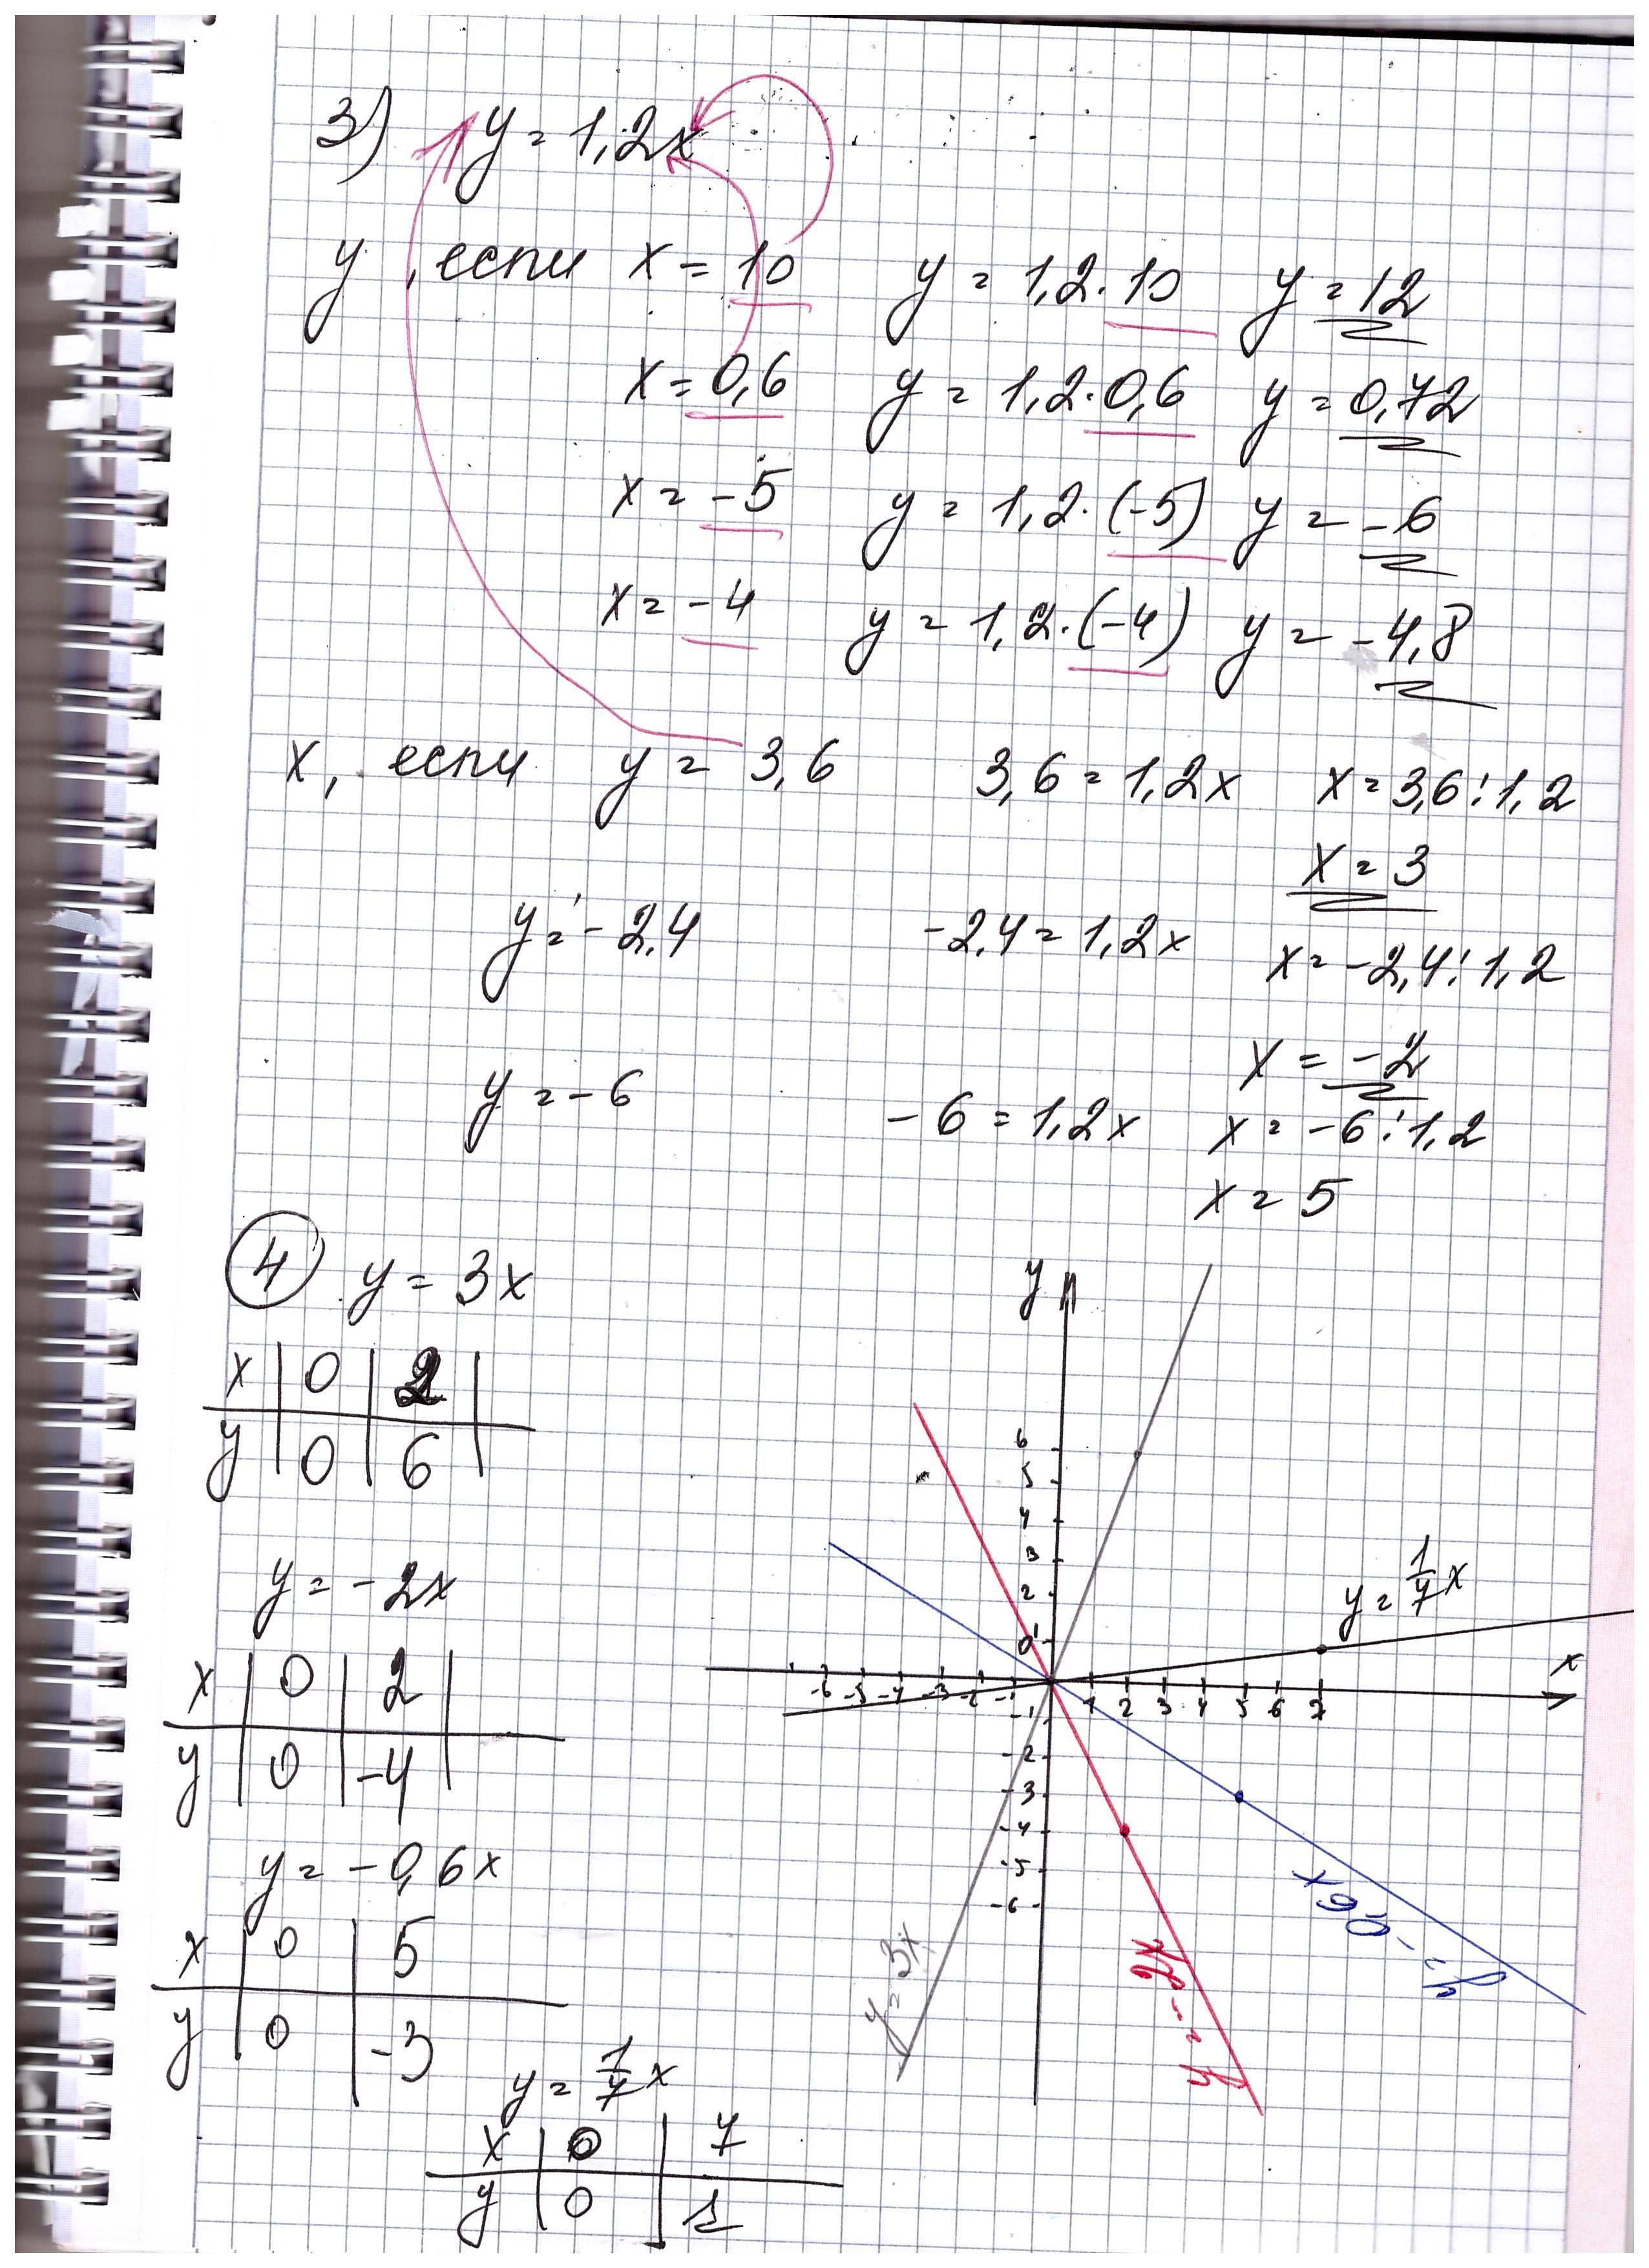 3) y = 1,2x
y, если x = 10 y = 1,2·10 y = 12
x = 0,6 y = 1,2·0,6 y = 0,72
x = -5 y = 1,2·(-5) y = -6
x = -4 y = 1,2·(-4) y = -4,8
x, если y = 3,6 3,6 = 1,2x x = 3,6:1,2
x = 3
y = -2,4 -2,4 = 1,2x x = -2,4:1,2
x = -2
y = -6 -6 = 1,2x x = -6:1,2
x = 5
4 y = 3x
x | 0 | 2 |
y | 0 | 6 |
y = -2x
x | 0 | 2 |
y | 0 | -4 |
y = -0,6x
x | 0 | 5
y | 0 | -3
y = 1/7 x
x | 0 | 7
y | 0 | 1
y
6
5
4
3
2
1
0
y = 1/7 x
x
-6 -5 -4 -3 -2 -1 1 2 3 4 5 6 7
-1
-2
-3
-4
-5
-6
y = 3x
y = -2x
y = -0,6x